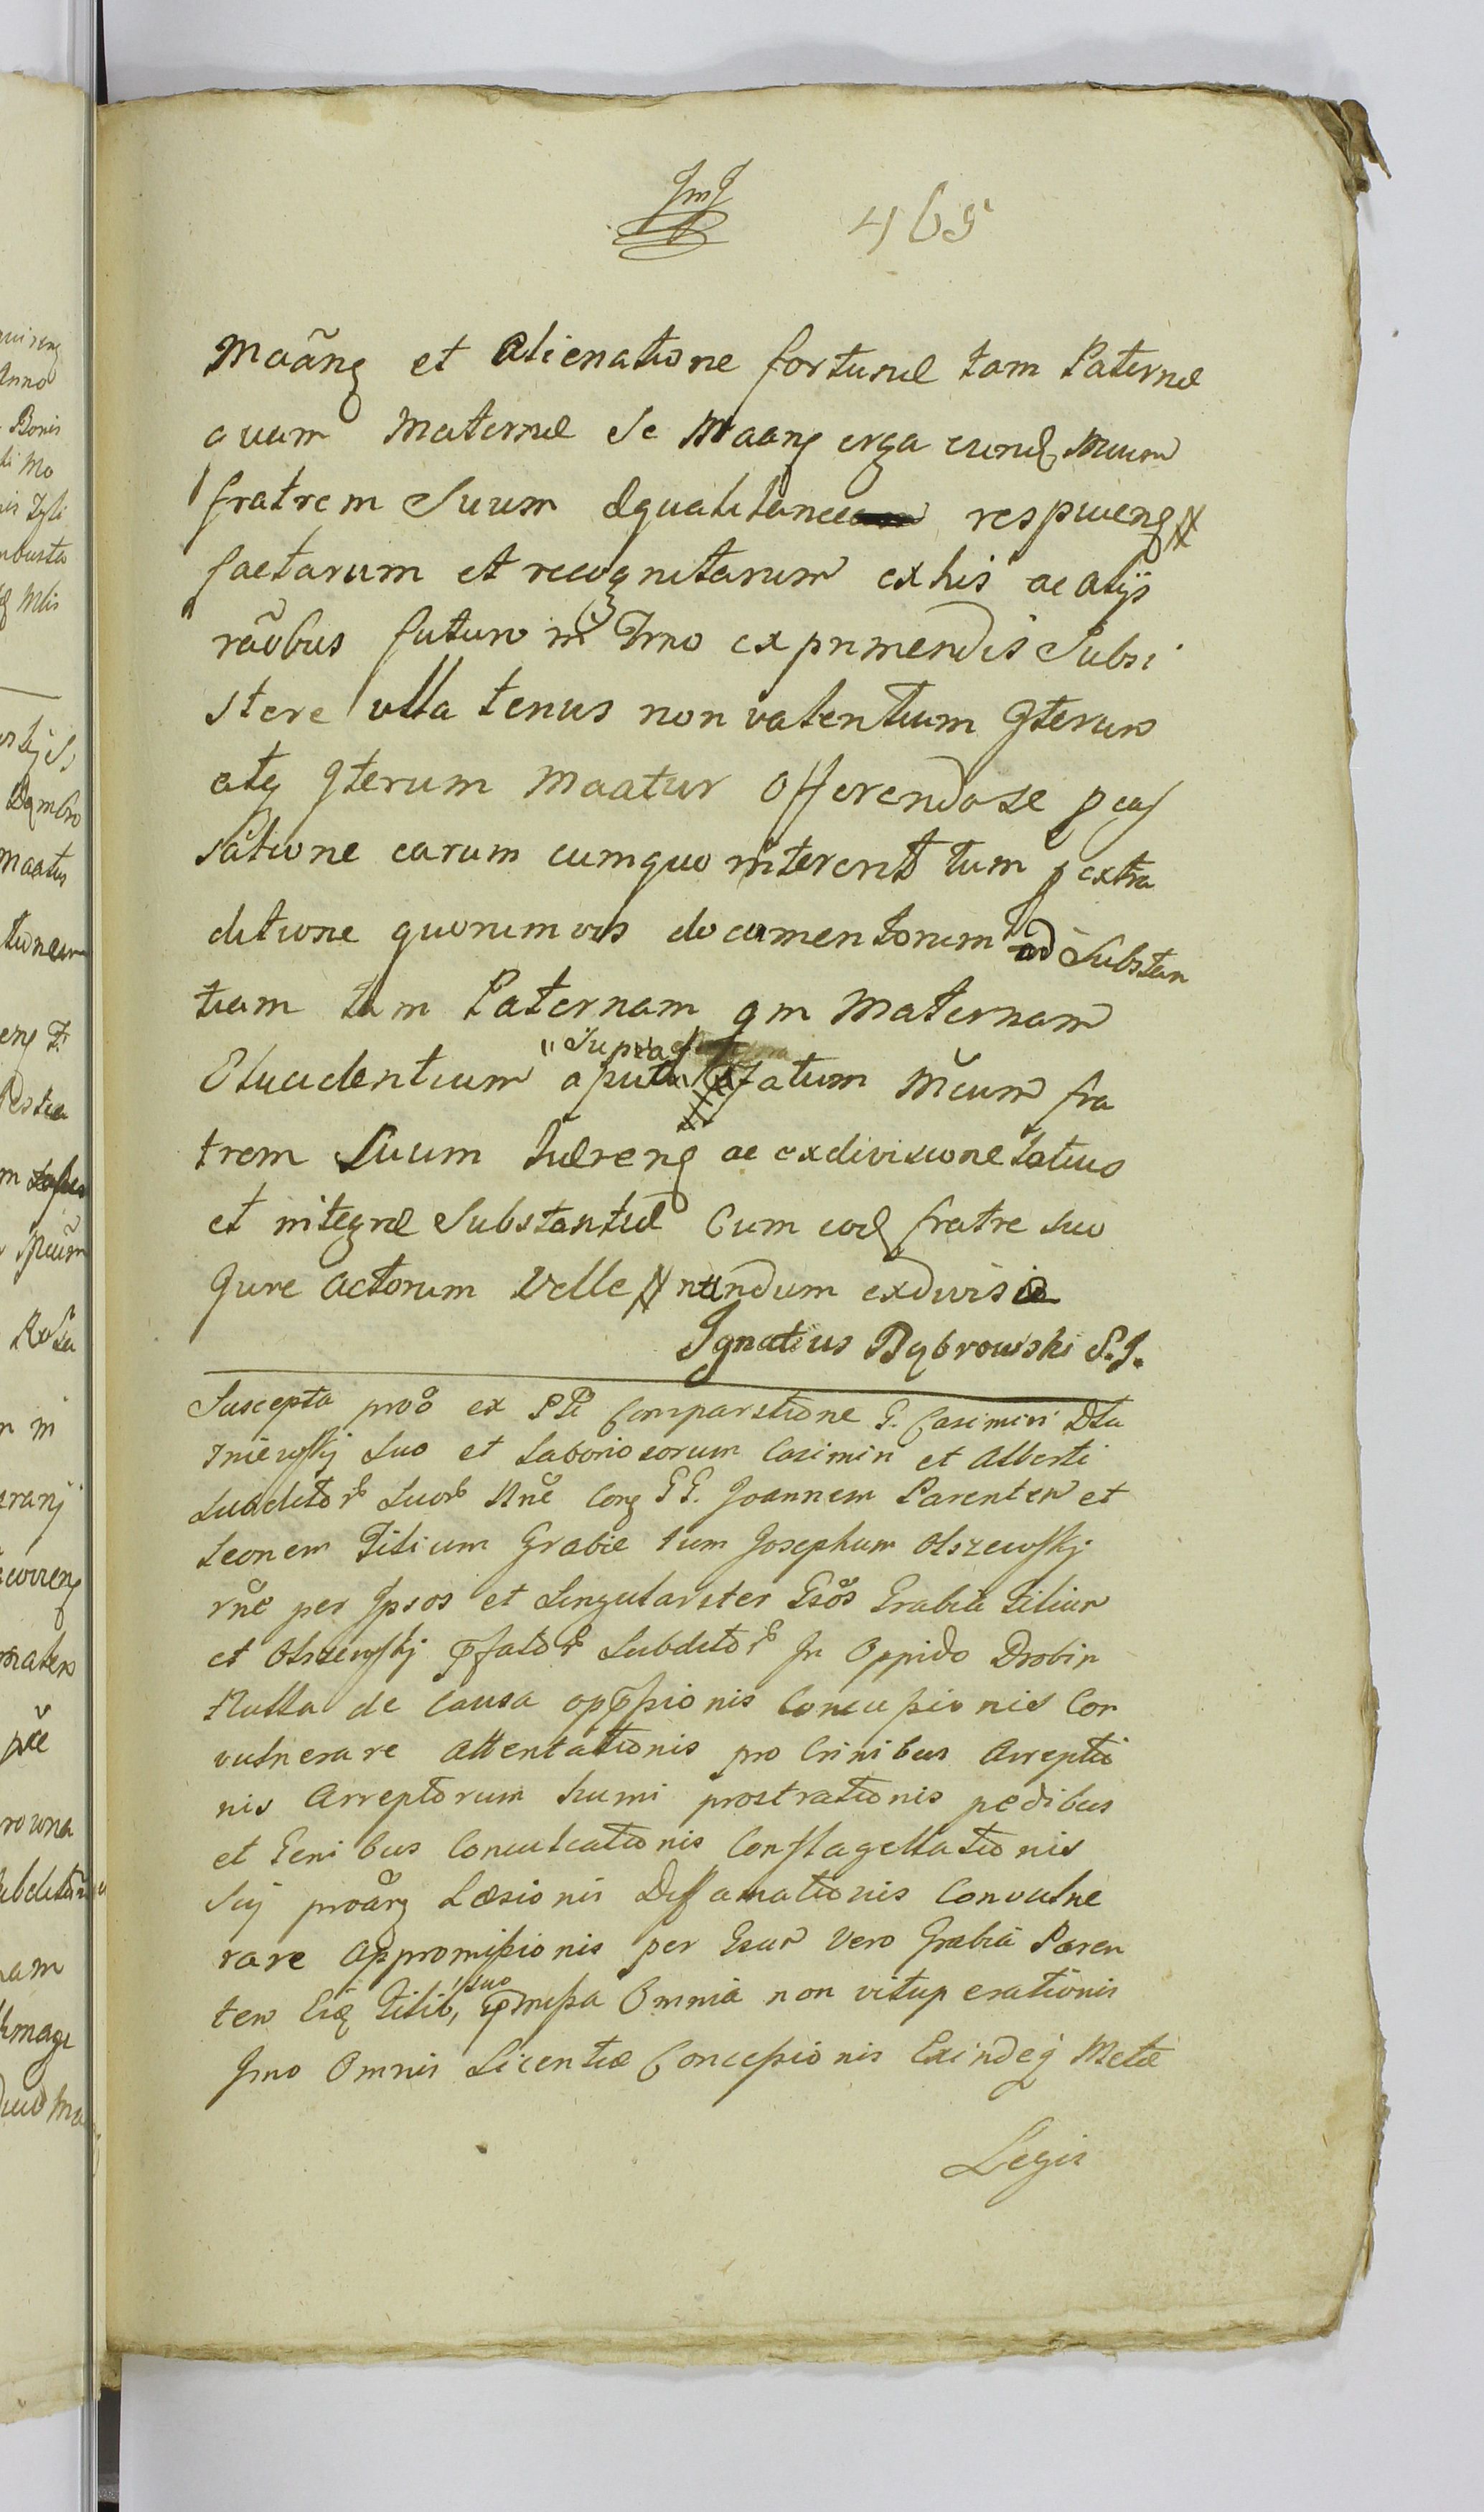 JmJ 465
Maãnẽ et Alienatione fortunæ tam Paternæ
quam Maternæ se Maanẽ erga eund. Mcum
fratrem Suum æqualitance respicienẽ #
factarum et recognitarum ex his ac alijs
rãobus futuro in Trno exprimendis Subsi
stere ulla tenus non valentium Iterum
atq iterum Maatur Offerendo se p cas
sãtione earum cumquo intererit tum p extra
ditione quorumvis documentorum ad Substan
tiam tam Paternam qm Maternam
Elucidentium apud fatum Mcum fra
"Supra
trem Suum hærenẽ ac ex divisione totius
et integræ Substantiæ Cum eod fratre suo
Jure Actorum Velle # nundum exdivisæ
Ignatius Dąbrowski S. J.
Suscepta proõ ex PPti Comparitione G. Casimiri Dłu
zniewskj Suo et Laboriosorum Casimiri et Alberti
Subditor Suor Nnẽ Conẽ GG. Joannem Parentem et
Leonem Filium Grabie tum Josephum Olszewskj
rnẽ per Ipsos et Singulariter Gsõs Grabia Filium
et Olszewskj pfator Subditor In Oppido Drobin
Nulla de Causa oppssionis Concussionis Con
vulnerare Attentationis pro Crinibus Arreptio
nis Arreptorum humi prostrationis pedibus
et Genibus Conculcationis Conflagellationis
Sij proãrẽ Læsionis Diffamationis Convulne
rare Appromissionis per Gsum Vero Grabia Paren
tem Eiq Filio, suo pmissa Omnia non vituperationis
Imo Omnis Licentiæ Concessionis Exindeq Metæ
Legis